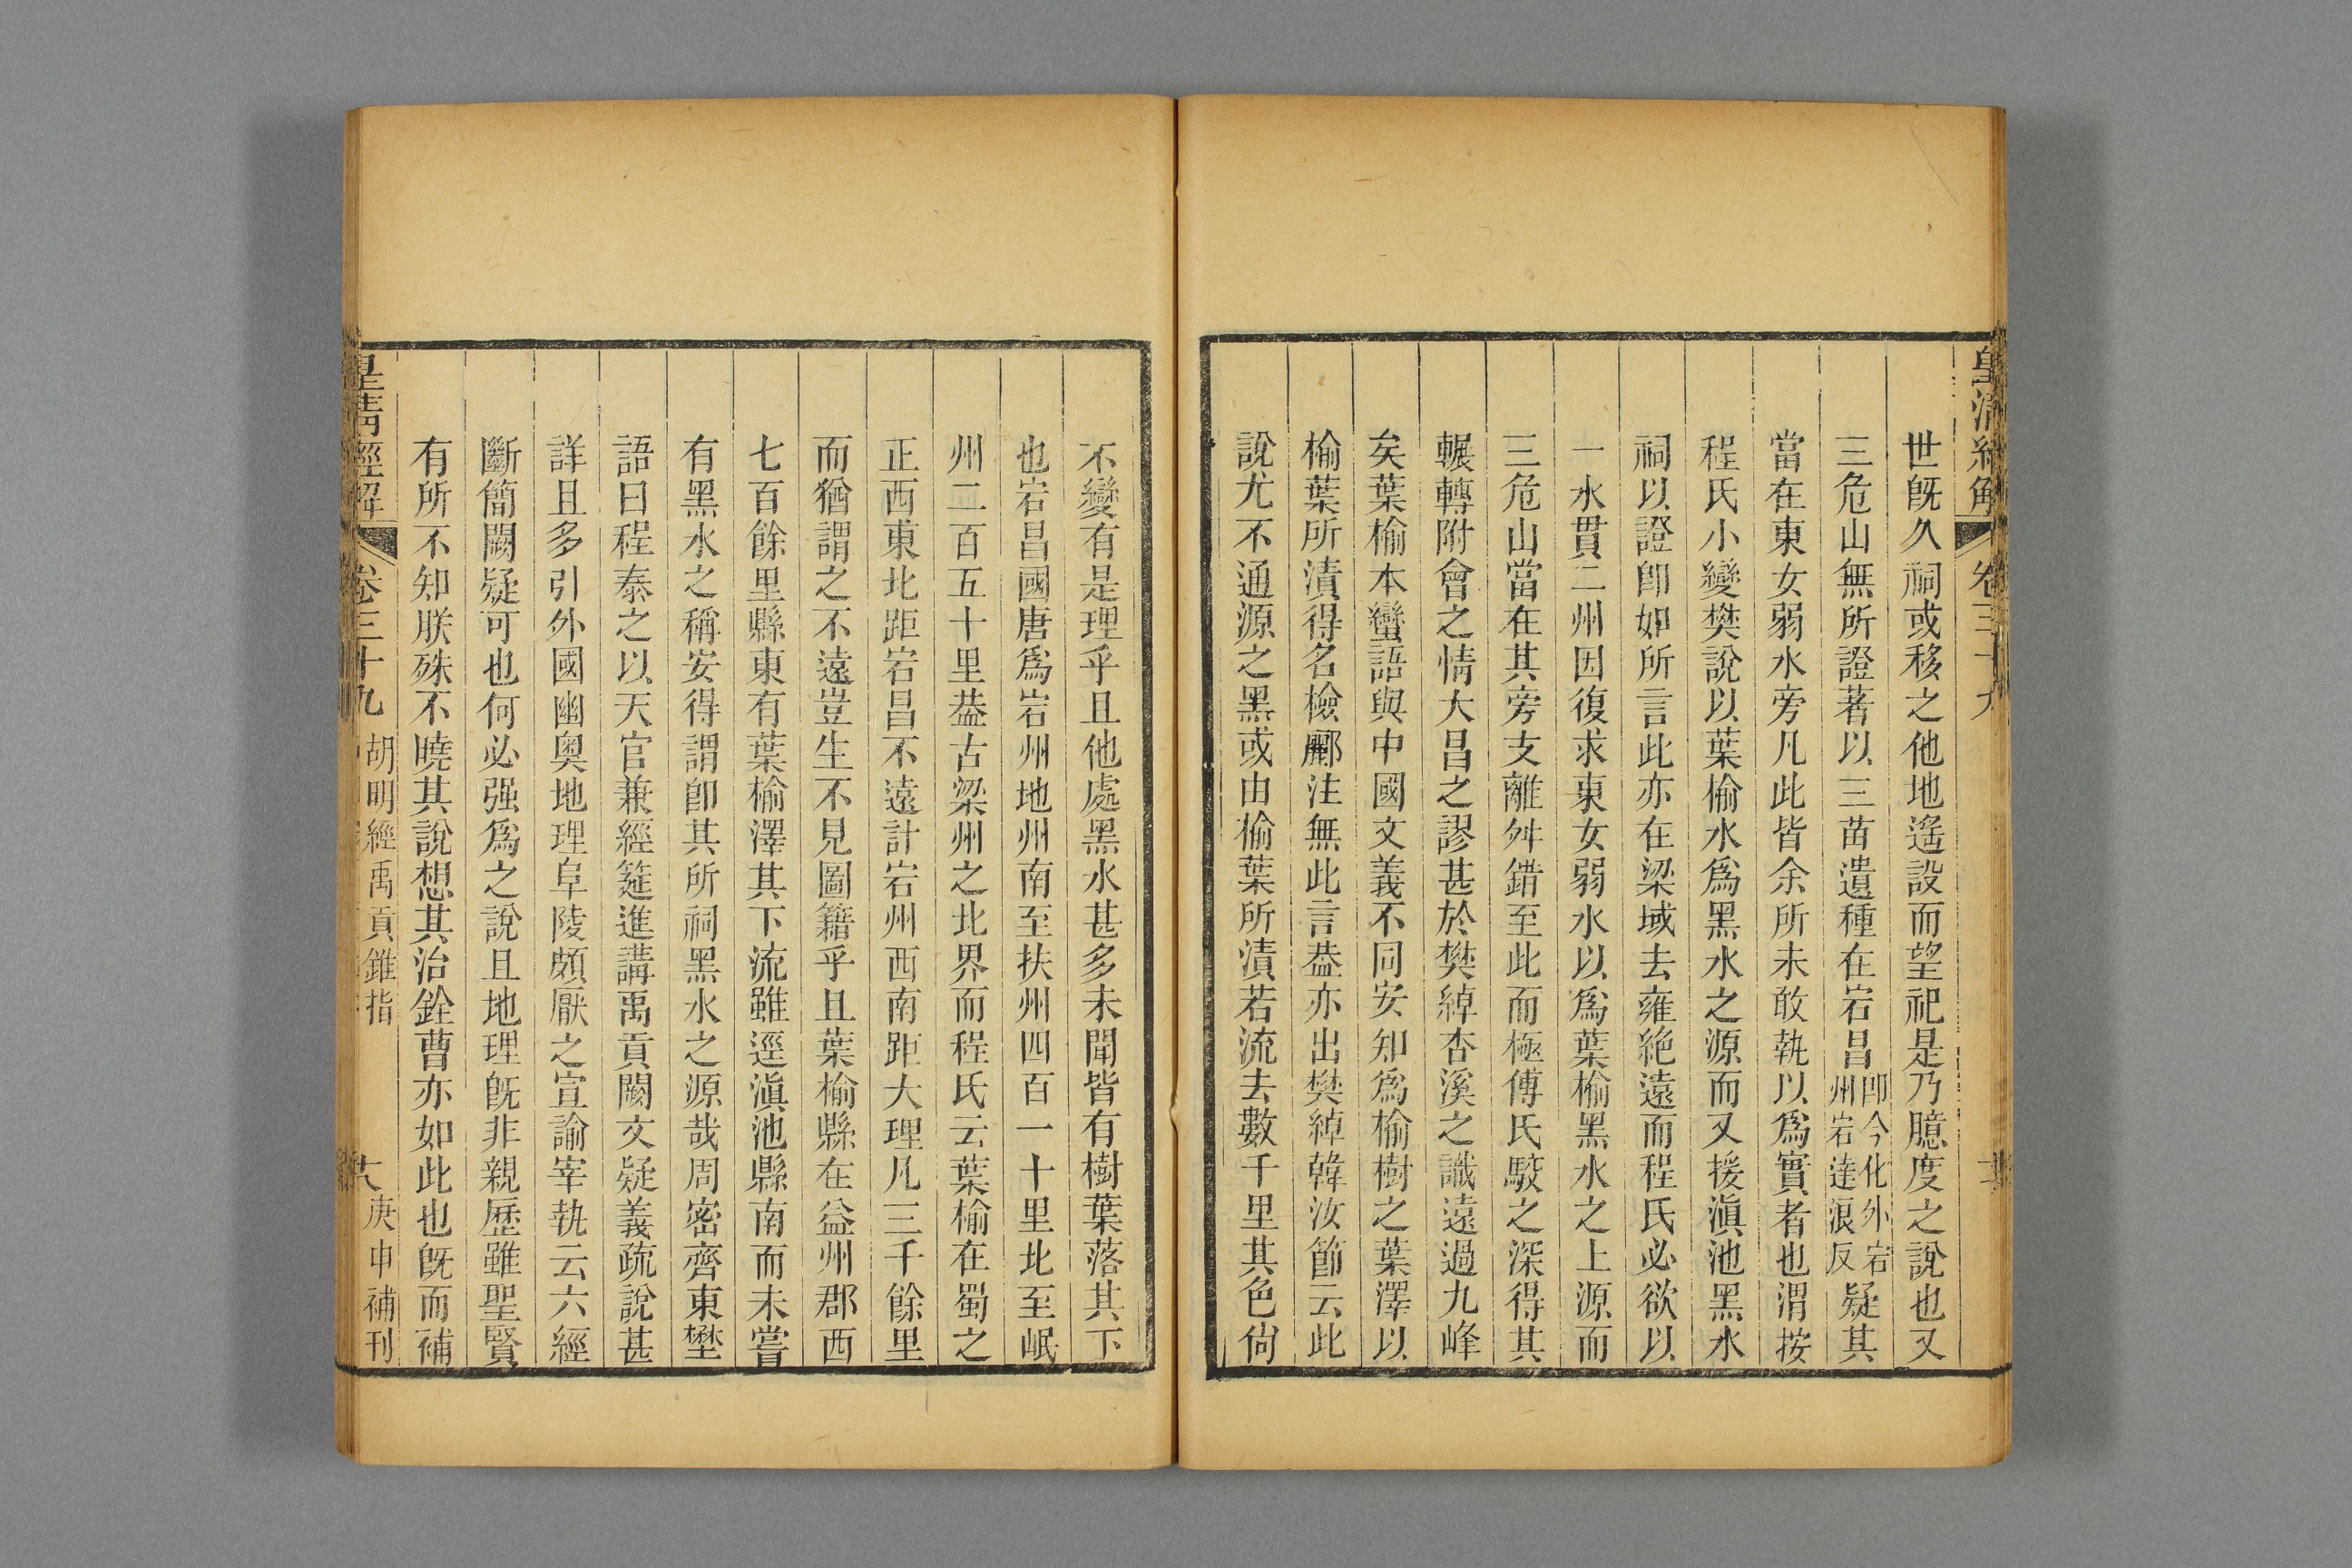 皇清經解
卷三十九
世旣久祠或移之他地遙設而望祀是乃臆度之說也又
三危山無所證著以三苗遺種在宕昌卽今化外宕州宕達浪反疑其
當在東女弱水旁凡此皆余所未敢執以爲實者也渭按
程氏小變樊說以葉榆水爲黑水之源而又援滇池黑水
祠以證卽如所言此亦在梁域去雍絶遠而程氏必欲以
一水貫二州因復求東女弱水以爲葉榆黑水之上源而
三危山當在其旁支離舛錯至此而極傅氏駁之深得其
輾轉附會之情大昌之謬甚於樊綽杏溪之識遠過九峰
矣葉榆本蠻語與中國文義不同安知爲榆樹之葉澤以
榆葉所漬得名檢酈注無此言葢亦出樊綽韓汝節云此
說尤不通源之黑或由榆葉所漬若流去數千里其色尙
不變有是理乎且他處黑水甚多未聞皆有樹葉落其下
也宕昌國唐爲宕州地州南至扶州四百一十里北至岷
州二百五十里葢古梁州之北界而程氏云葉榆在蜀之
正西東北距宕昌不遠計宕州西南距大理凡三千餘里
而猶謂之不遠豈生不見圖籍乎且葉榆縣在益州郡西
七百餘里縣東有葉榆澤其下流雖逕滇池縣南而未嘗
有黑水之稱安得謂卽其所祠黑水之源哉周密齊東埜
語曰程泰之以天官兼經筵進講禹貢闕文疑義疏說甚
詳且多引外國幽奥地理阜陵頗厭之宣諭宰執云六經
斷簡闕疑可也何必强爲之說且地理旣非親歷雖聖賢
有所不知朕殊不曉其說想其治銓曹亦如此也旣而補
皇清經解
卷三十九
胡明經禹貢錐指
庚申補刊